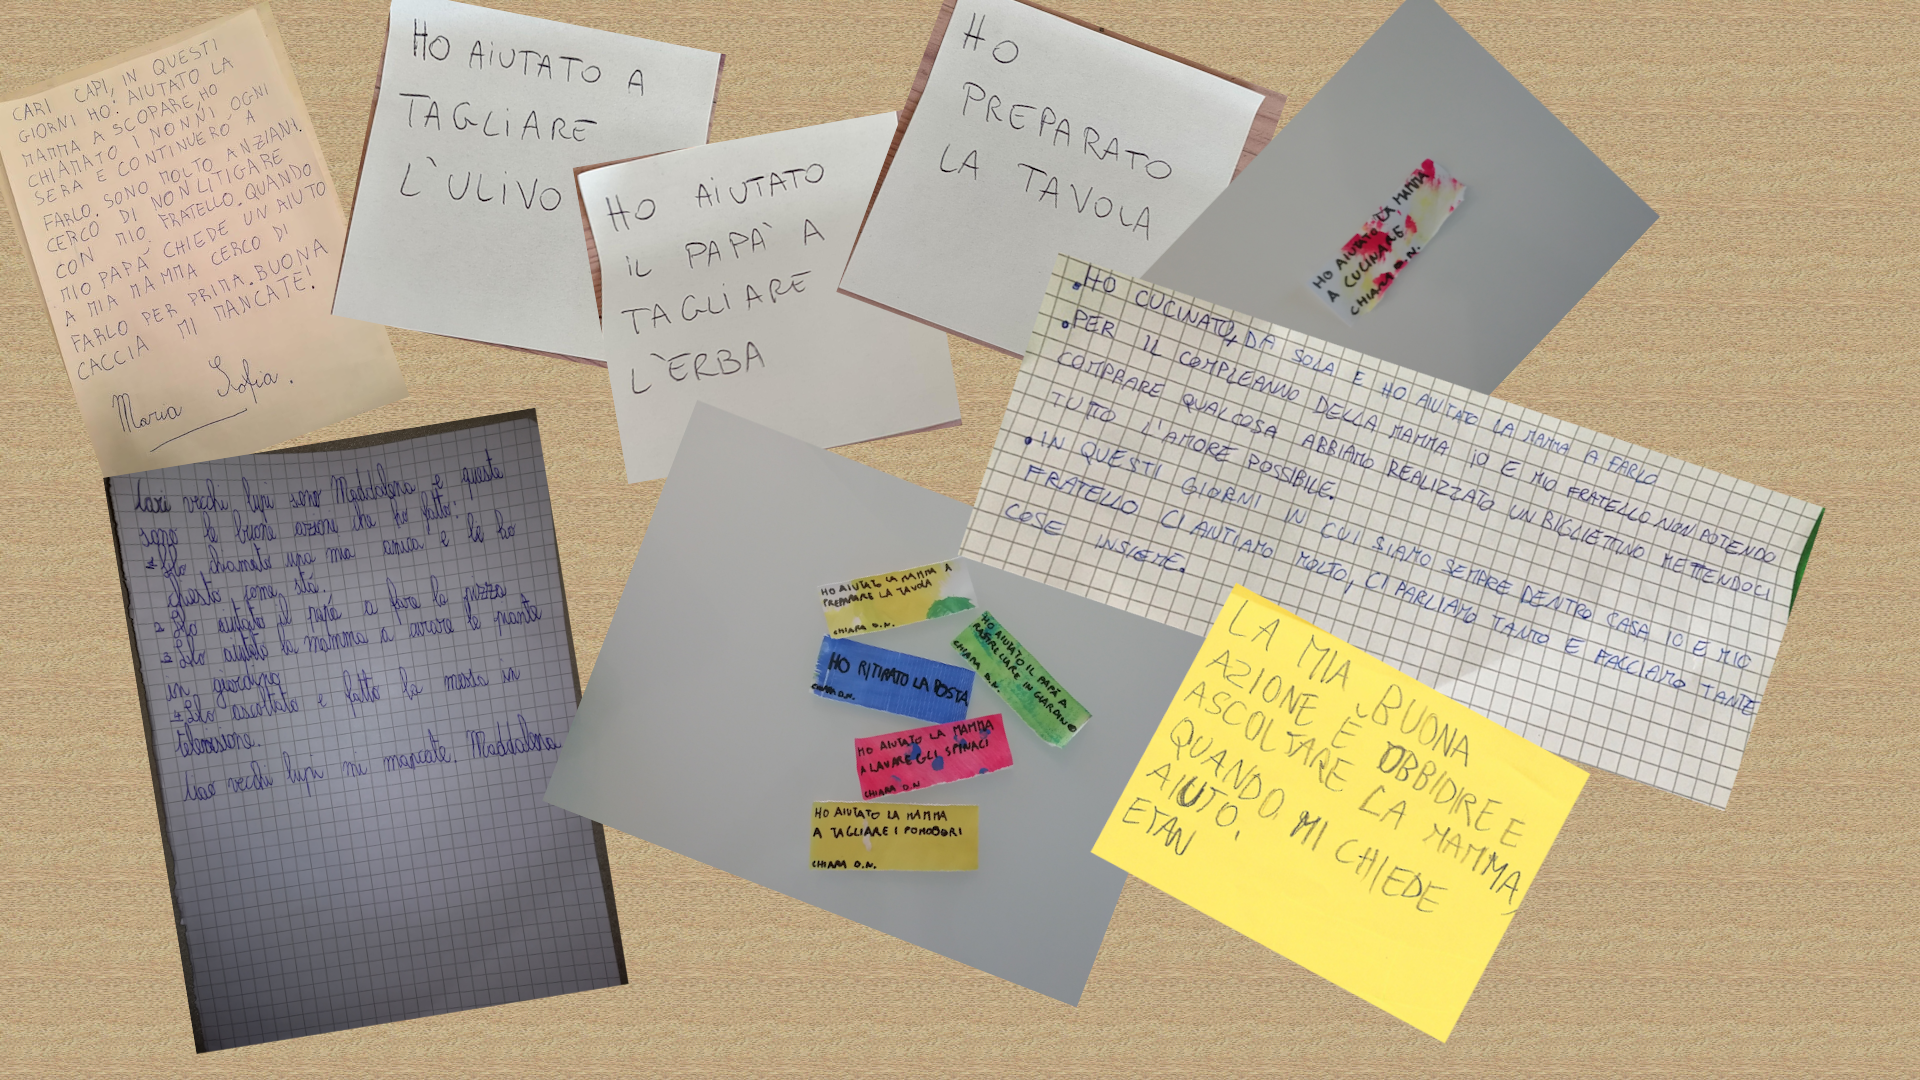 CARI CAPI, IN QUESTI
GIORNI HO: AIUTATO LA
MAMMA A SCOPARE, HO
CHIAMATO I NONNI OGNI
SERA E CONTINUERO' A
FARLO. SONO MOLTO ANZIANI.
CERCO DI NON LITIGARE
CON MIO FRATELLO. QUANDO
MIO PAPA' CHIEDE UN AIUTO
A MIA MAMMA CERCO DI
FARLO PER PRIMA. BUONA
CACCIA MI MANCATE!
Maria Sofia.
HO AiUTATO A
TAGLiARE
L'ULIVO
HO AiUTATO
iL PAPA' A
TAGLiARE
L'ERBA
HO
PREPARATO
LA TAVOLA
HO AIUTATO LA MAMMA
A CUCINARE
CHIARA D.N.
•HO CUCINATO, DA SOLA E HO AIUTATO LA MAMMA A FARLO
•PER IL COMPLEANNO DELLA MAMMA IO E MIO FRATELLO NON POTENDO
COMPRARE QUALCOSA ABBIAMO REALIZZATO UN BIGLIETTINO METTENDOCI
TUTTO L'AMORE POSSIBILE.
•IN QUESTI GIORNI IN CUI SIAMO SEMPRE DENTRO CASA IO E MIO
FRATELLO CI AIUTIAMO MOLTO, CI PARLIAMO TANTO E FACCIAMO TANTE
COSE INSIEME.
Cari vecchi lupi sono Maddalena e queste
sono le buone azioni che ho fatto:
1 Ho chiamato una mia amica e le ho
chiesto come sta.
2 Ho aiutato il papà a fare la pizza
3 Ho aiutato la mamma a curare le piante
in giardino
4 Ho ascoltato e fatto la messa in
televisione.
Ciao vecchi lupi mi mancate. Maddalena
HO AIUTATO LA MAMMA A
PREPARARE LA TAVOLA
CHIARA D.N.
HO AIUTATO IL PAPÀ A
RASTRELLARE IN GIARDINO
CHIARA D.N.
HO RITIRATO LA POSTA
CHIARA D.N.
HO AIUTATO LA MAMMA
A LAVARE GLI SPINACI
CHIARA D.N
HO AIUTATO LA MAMMA
A TAGLIARE I POMODORI
CHIARA D.N.
LA MIA BUONA
AZIONE È OBBIDIRE E
ASCOLTARE LA MAMMA,
QUANDO MI CHIEDE
AIUTO.
ETAN